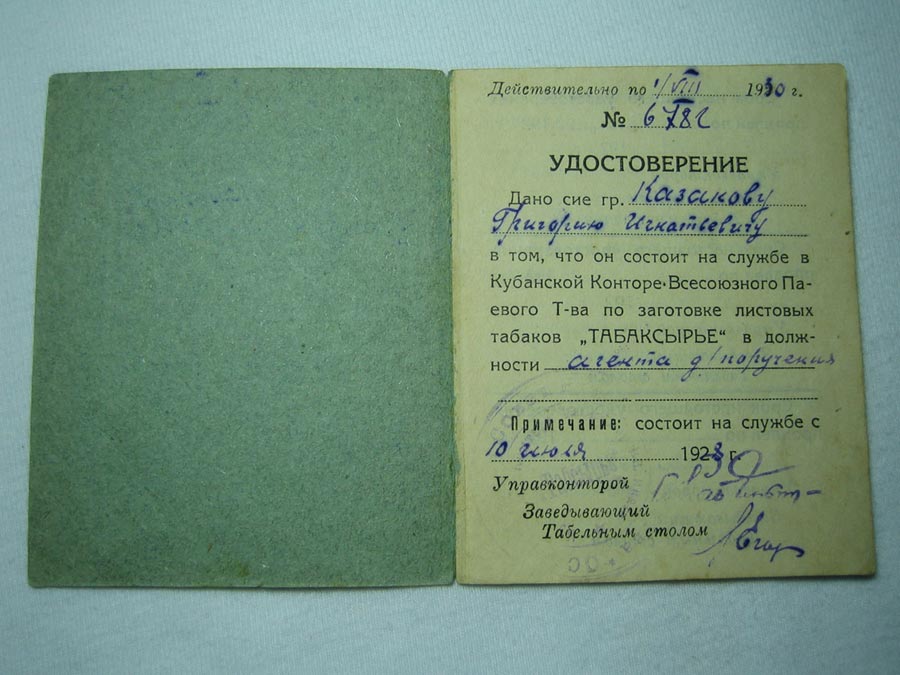 Действительно по 1/VIII 1930 г.
№ 6782
УДОСТОВЕРЕНИЕ
Дано сие гр. Казакову
Григорию Игнатьевичу
в том, что он состоит на службе в
Кубанской Конторе Всесоюзного Па-
евого Т-ва по заготовке листовых
табаков „ТАБАКСЫРЬЕ“ в долж-
ности агента д/поручения
Примечание: состоит на службе с
10 июля 1928 г.
Управконторой
Заведывающий
Табельным столом